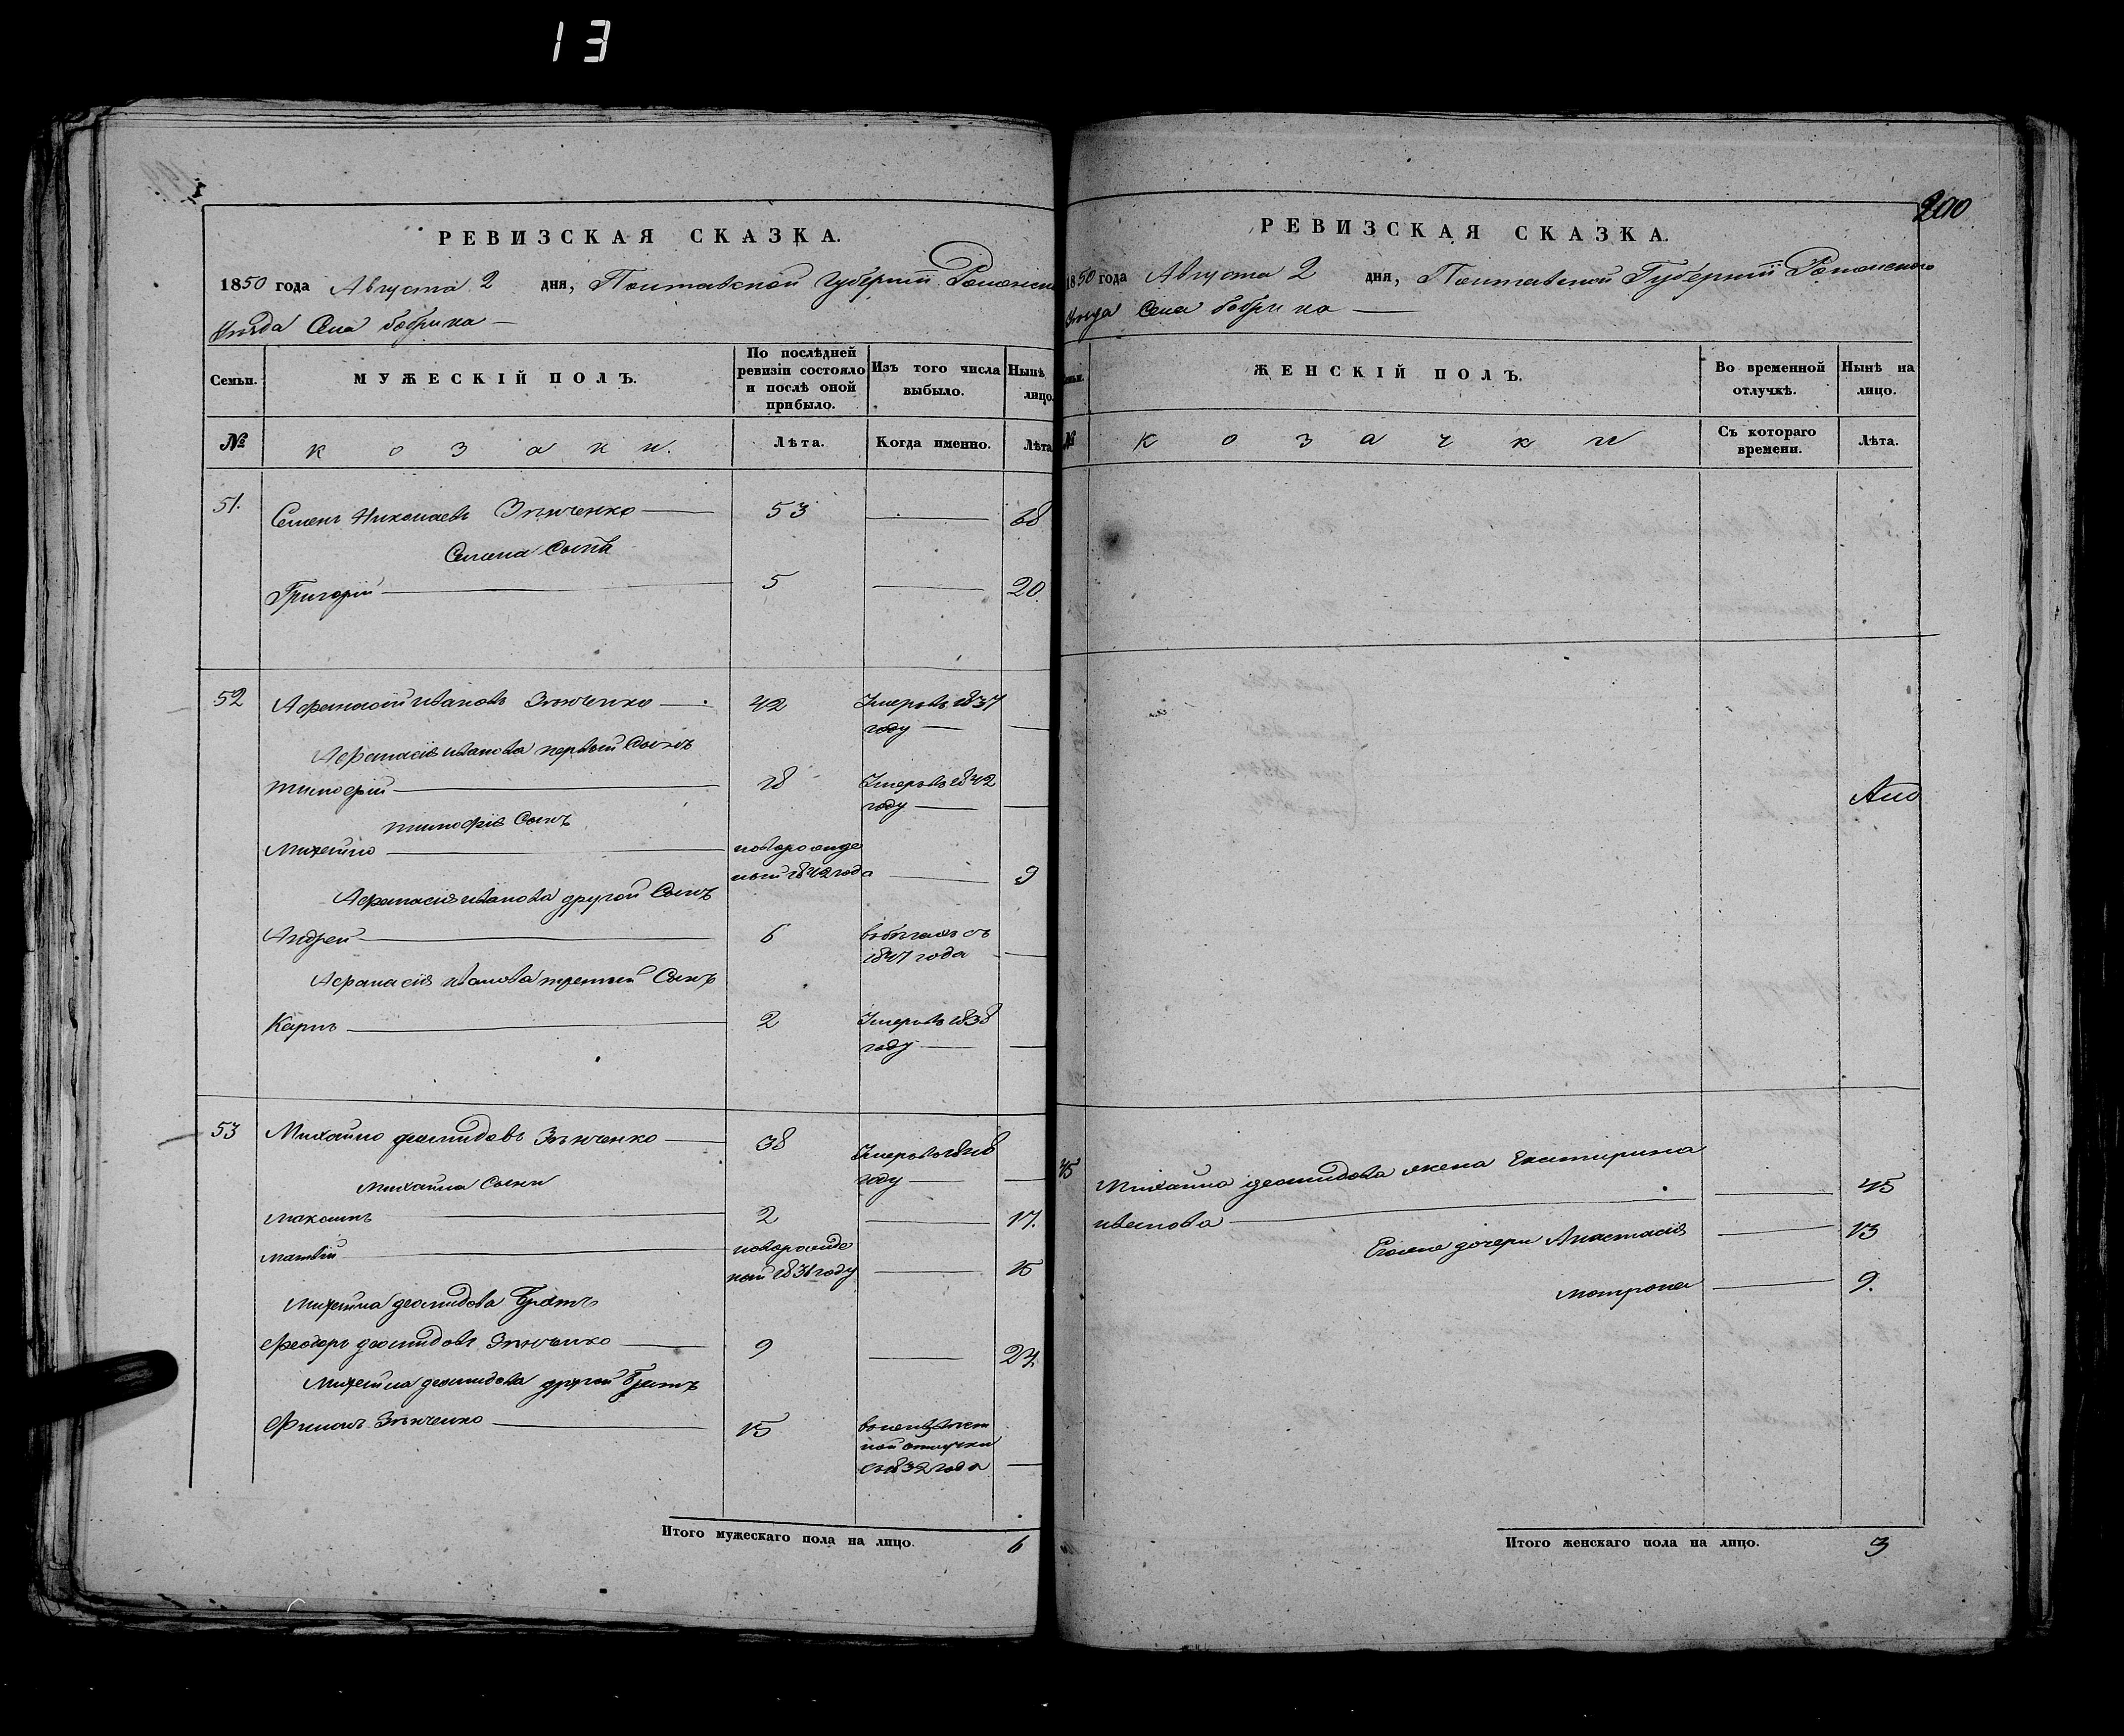 13
РЕВИЗСКАЯ СКАЗКА.
1850 года Августа 2 дня, Полтавской Губернии Роменскаго
Уезда Села бобрика —
Семьи. МУЖЕСКІЙ ПОЛЪ. По послѣдней ревизіи состояло и послѣ оной прибыло. Изъ того числа выбыло. Нынѣ лицо.
№ козаки. Лѣта. Когда именно. Лѣта
51. Семенъ Николаевъ Зѣнченко — 53 — 68
Семена Сынъ
Григорій — 5 — 20
52 Афанасій ивановъ Зѣнченко — 42 Умеръ въ 1837
году — —
Афанасія иванова первый Сынъ
тимофій — 18 Умеръ въ 1842
году — —
тимофія Сынъ
Михайло — новорожде
ный 1842 года — 9
Афанасія иванова другой Сынъ
Андрей — 6 въ бѣгахъ съ
1847 года —
Афанасія иванова третий Сынъ
Карпъ — 2 Умеръ въ 1838
году — —
53 Михайло деомидовъ Зѣнченко — 38 Умеръ 1848
году — —
Михайла Сыни
Максимъ — 2 — 17.
матвій — новорожде
ный 1836 году — 15
Михайла деомидова Братъ
Феодоръ деомидовъ Зѣнченко — 9 — 24.
Михайла деомидова другой Братъ
Филонъ Зѣнченко — 15 въ неизвѣст
ной отлучки
съ 1832 года —
Итого мужескаго пола на лицо. 6
200
РЕВИЗСКАЯ СКАЗКА.
1850 года Августа 2 дня, Полтавской Губерніи Роменскаго
Уезда Села бобрика —
Семьи. ЖЕНСКІЙ ПОЛЪ. Во временной отлучкѣ. Нынѣ на лицо.
№ козачки Съ котораго времени. Лѣта.
45 Михайла деомидова жена Екатирина
иванова — — 45
Егожъ дочери Анастасія — 13
мотрона — 9.
Итого женскаго пола на лицо. 3